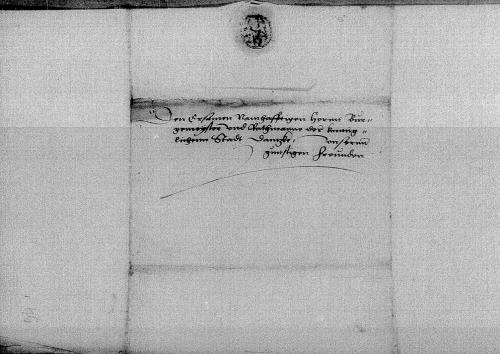 Den Ersamen Namhafftigen Herrn Bur-
gemeyster und Rathmanne der konig-
lichenn Stadt Dantzke, unsernn
gunstigen Freunden